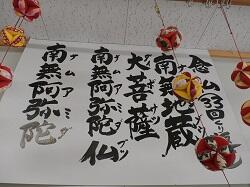 念仏33回くり
南無地蔵
大菩薩
南無阿弥陀仏
ナムアミダブツ
南無阿弥陀
ナムアミダ